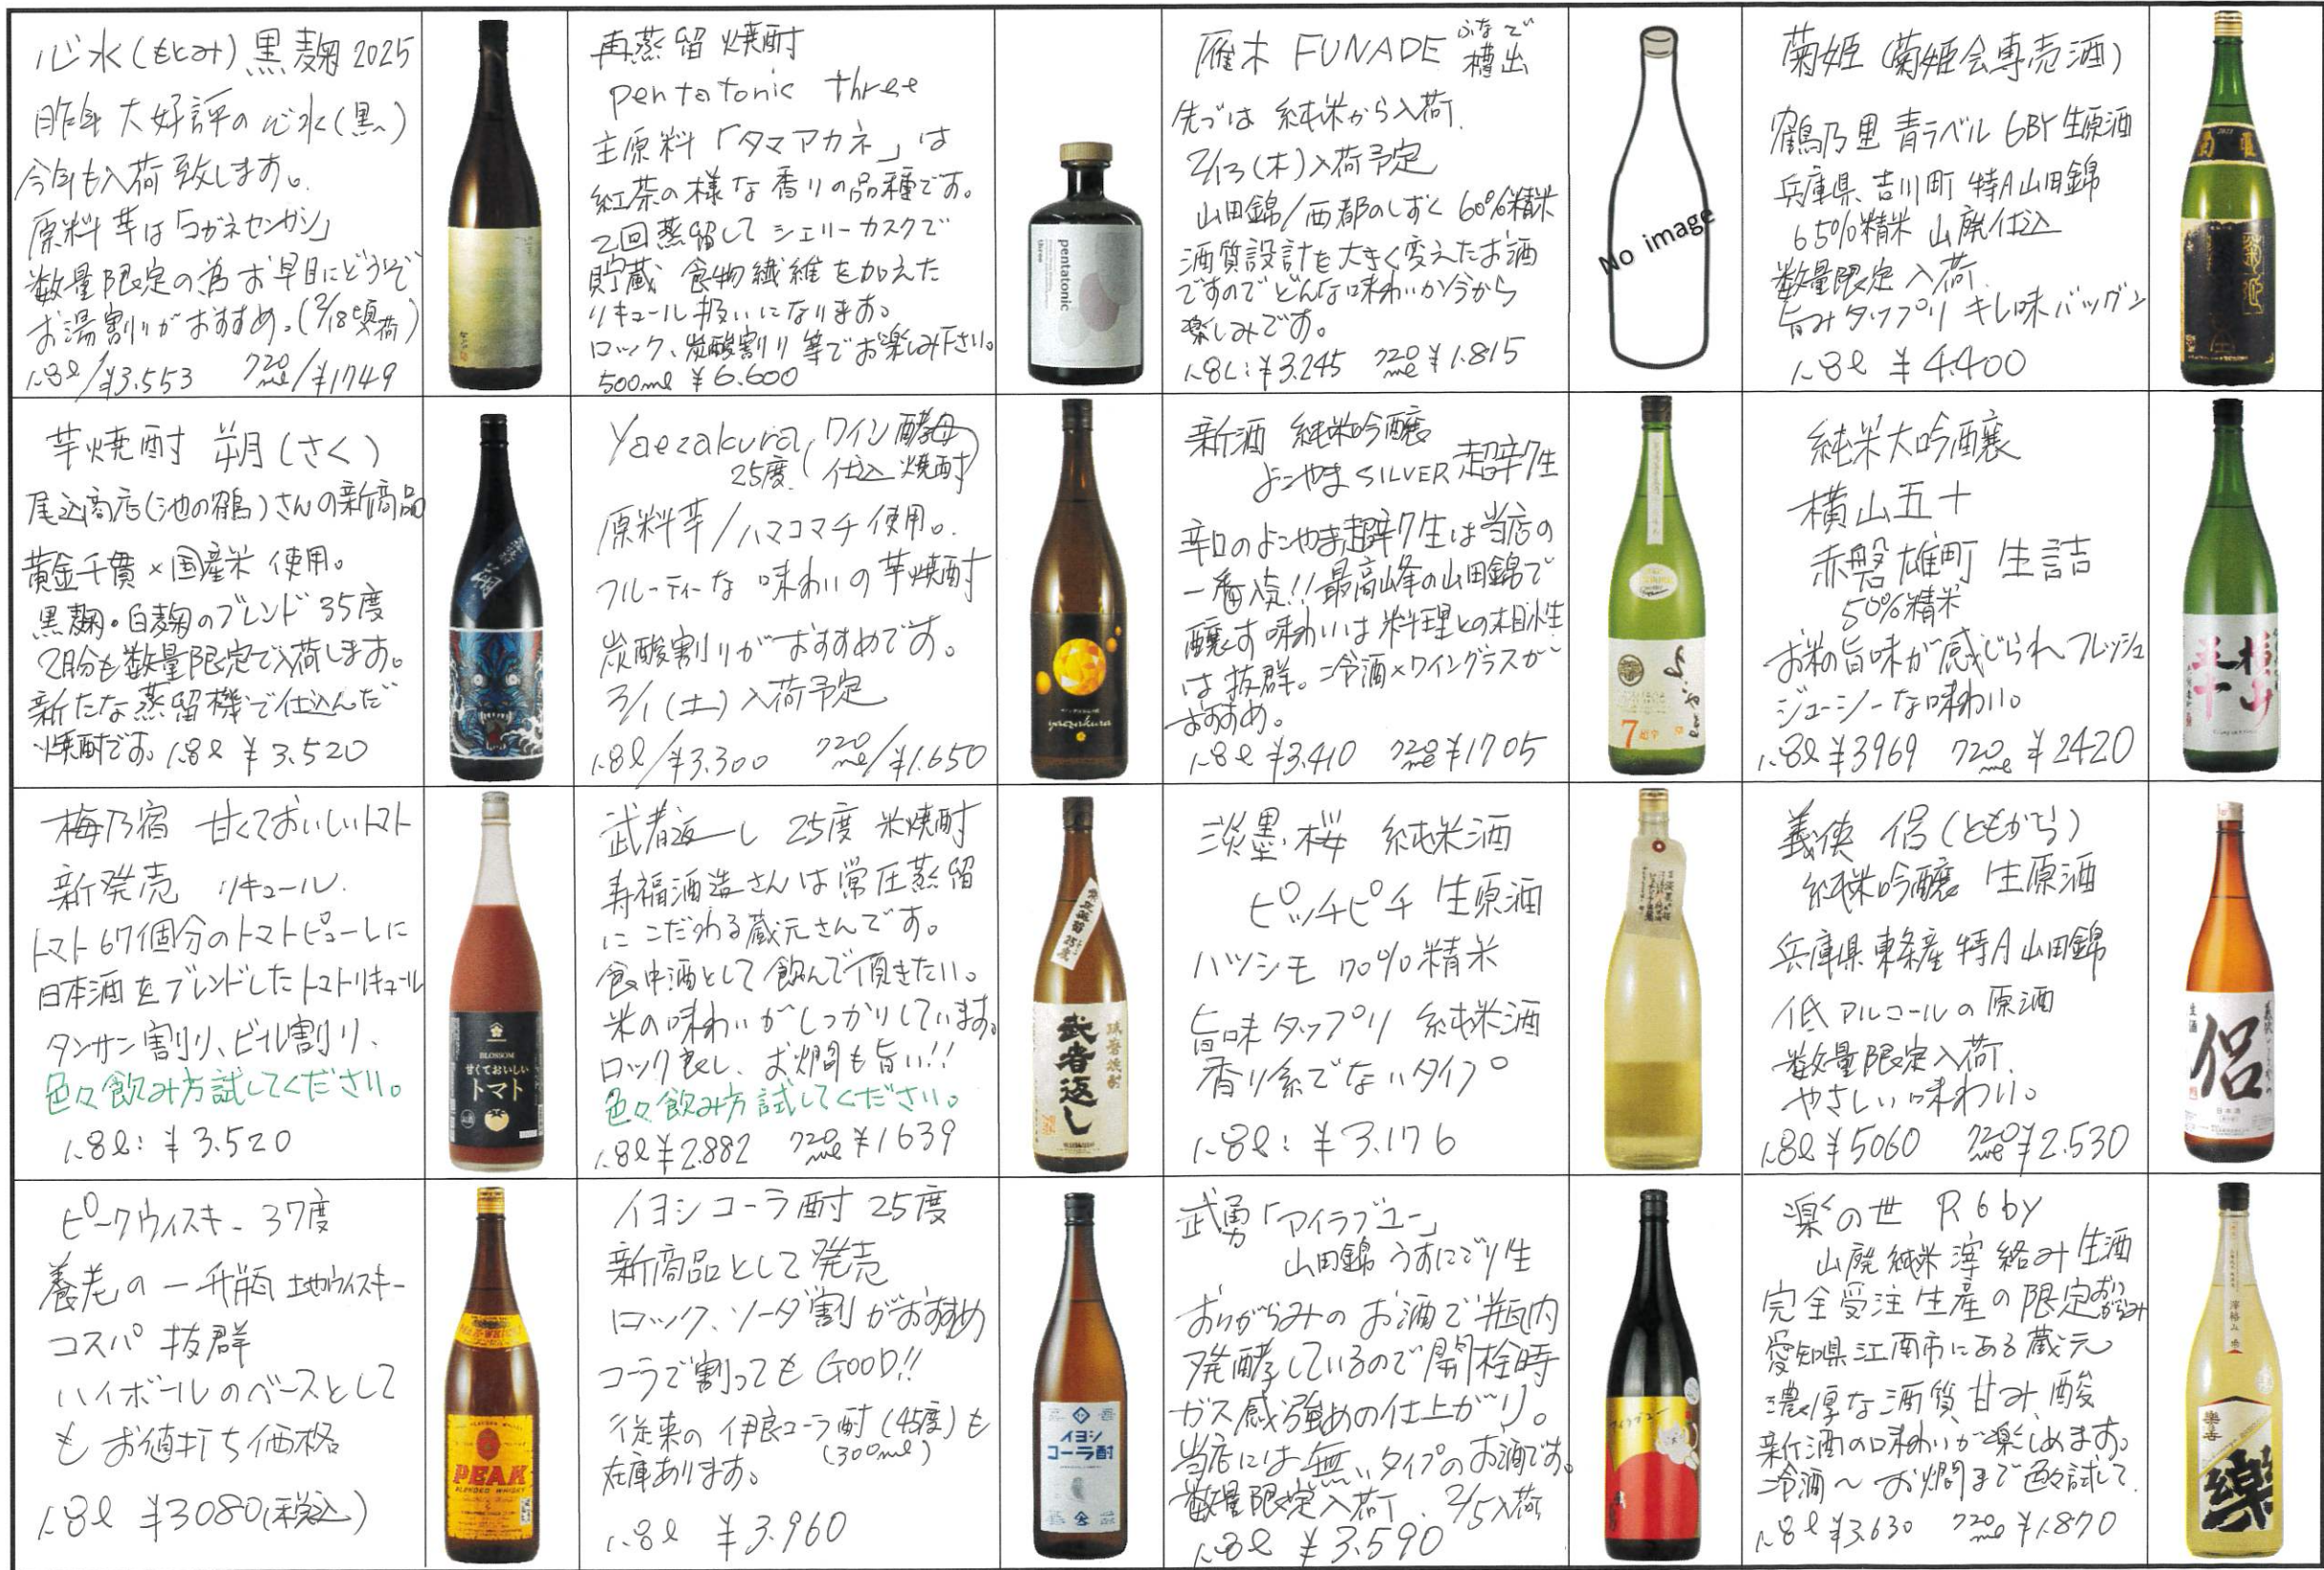 心水(もとみ)黒麹2025
昨年大好評の心水(黒)
今年も入荷致します。
原料芋は「コガネセンガン」
数量限定の為お早目にどうぞ
お湯割りがおすすめ。(2/18頃入荷)
1.8ℓ/¥3.553 720ml/¥1749
再蒸留焼酎
pentatonic three
主原料「タマアカネ」は
紅茶の様な香りの品種です。
2回蒸留してシェリーカスクで
貯蔵 食物繊維を加えた
リキュール扱いになります。
ロック、炭酸割り等でお楽しみ下さい。
500ml ¥6.600
pentatonic
three
雁木 FUNADE 槽出
ふなで
先づは 純米から入荷.
2/13(木)入荷予定
山田錦/西都のしずく 60%精米
酒質設計を大きく変えたお酒
ですのでどんな味わいか今から
楽しみです。
1.8L:¥3.245 720ml¥1.815
No image
菊姫(菊姫会専売酒)
鶴乃里 青ラベル 6BY生原酒
兵庫県吉川町 特A山田錦
65%精米 山廃仕込
数量限定入荷.
旨みタップリ キレ味バツグン
1.8ℓ ¥4.400
芋焼酎 朔(さく)
尾込商店(池の鶴)さんの新商品
黄金千貫×国産米 使用。
黒麹・白麹のブレンド 35度
2月分も数量限定で入荷します。
新たな蒸留機で仕込んだ
焼酎です。1.8ℓ ¥3.520
Yaezakura(ワイン酵母
25度. 仕込 焼酎)
原料芋/ハマコマチ使用。
フルーティーな 味わいの芋焼酎
炭酸割りがおすすめです。
3/1(土)入荷予定
1.8ℓ/¥3.300 720ml/¥1.650
yaezakura
新酒 純米吟醸
よこやまSILVER超辛7生
辛口のよこやま超辛7生は当店の
一番人気!!最高峰の山田錦で
醸す味わいは料理との相性
は抜群。冷酒×ワイングラスが
おすすめ。
1.8ℓ ¥3.410 720ml¥1705
よこやま
7超辛
純米大吟醸
横山五十
赤磐雄町 生詰
50%精米
お米の旨味が感じられフレッシュ
ジューシーな味わい。
1.8ℓ ¥3969 720ml ¥2420
横山
五十
梅乃宿 甘くておいしいトマト
新発売 リキュール.
トマト67個分のトマトピューレに
日本酒をブレンドしたトマトリキュール
タンサン割り、ビール割り、
色々飲み方試してください。
1.8ℓ: ¥3.520
BLOSSOM
甘くておいしい
トマト
武者返し 25度 米焼酎
寿福酒造さんは常圧蒸留
にこだわる蔵元さんです。
食中酒として飲んで頂きたい。
米の味わいがしっかりしています。
ロック良し、お燗も旨い!!
色々飲み方試してください。
1.8ℓ¥2.882 720ml¥1639
常圧蒸留 25度
球磨焼酎
武者返し
淡墨桜 純米酒
ピッチピチ 生原酒
ハツシモ 70%精米
旨味タップリ 純米酒
香り系でないタイプ
1.8ℓ: ¥3.176
義侠 侶(ともがら)
純米吟醸 生原酒
兵庫県東条産 特A山田錦
低アルコールの原酒
数量限定入荷.
やさしい味わい。
1.8ℓ ¥5060 720ml¥2.530
生酒
侶
日本酒
ピークウィスキー 37度
養老の一升瓶 地ウィスキー
コスパ 抜群
ハイボールのベースとして
も お値打ち価格
1.8ℓ ¥3080(税込)
PEAK
BLENDED WHISKY
イヨシコーラ酎 25度
新商品として発売
ロック、ソーダ割がおすすめ
コーラで割ってもGOOD!!
従来の 伊良コーラ酎(45度)も
(300ml)
在庫あります。
1.8ℓ ¥3.960
イヨシ
コーラ酎
武勇「アイラブユー」
山田錦 うすにごり生
おりがらみのお酒で瓶内
発酵しているので開栓時
ガス感強めの仕上がり。
当店には無いタイプのお酒です。
数量限定入荷. 2/5入荷
1.8ℓ ¥3.590
アイラブユー
楽の世 R6by
山廃純米 滓絡み生酒
完全受注生産の限定おりがらみ
愛知県江南市にある蔵元
濃厚な酒質 甘み、酸
新酒の味わいが楽しめます。
冷酒〜お燗まで色々試して.
1.8ℓ ¥3.630 720ml ¥1.870
滓絡み
楽